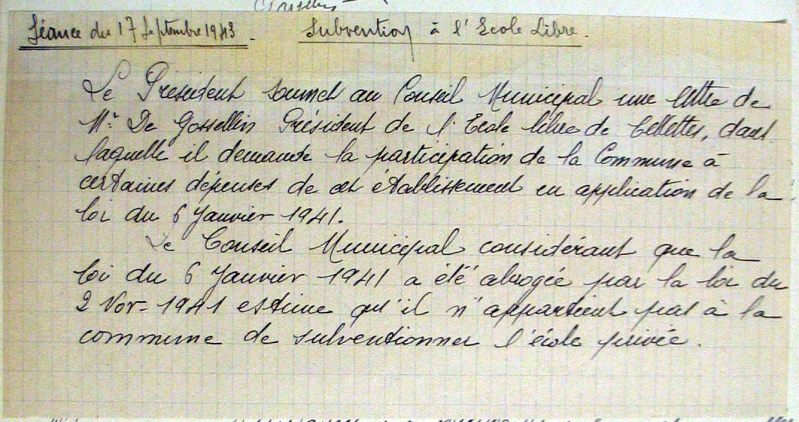 Séance du 17 Septembre 1943. Subvention à l'Ecole Libre.
Le Président soumet au Conseil Municipal une lettre de
Mr. De Gossellin Président de l'Ecole libre de Cellettes, dans
laquelle il demande la participation de la Commune à
certaines dépenses de cet établissement en application de la
loi du 6 Janvier 1941.
Le Conseil Municipal considérant que la
loi du 6 Janvier 1941 a été abrogée par la loi du
2 Nov- 1941 estime qu'il n'appartient pas à la
commune de subventionner l'école privée.